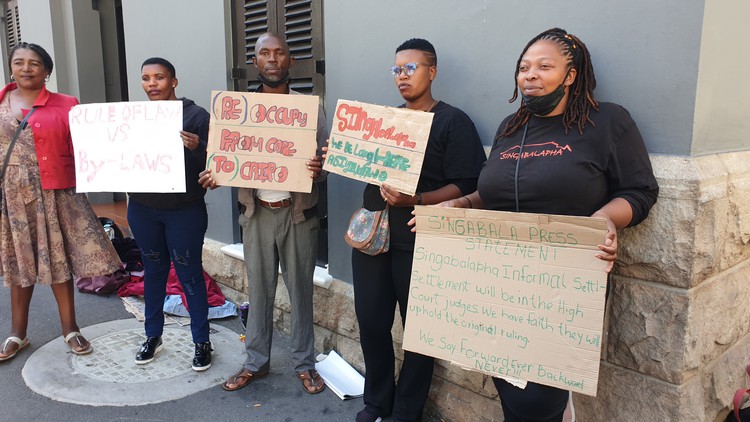 RULE OF LAW
VS
By-LAWS
(RE) OCCUPY
FROM CAPE
(TO) CAIRO
SINgabalapha...
WE BELONG HERE
ASIJIKI
SINGABALAPHA
SINGABALA PRESS
STATEMENT
Singabalapha Informal Settl-
Settlement will be in the High
Court judges we have faith they will
uphold the original ruling.
We Say Forward ever Backward
Never!!!